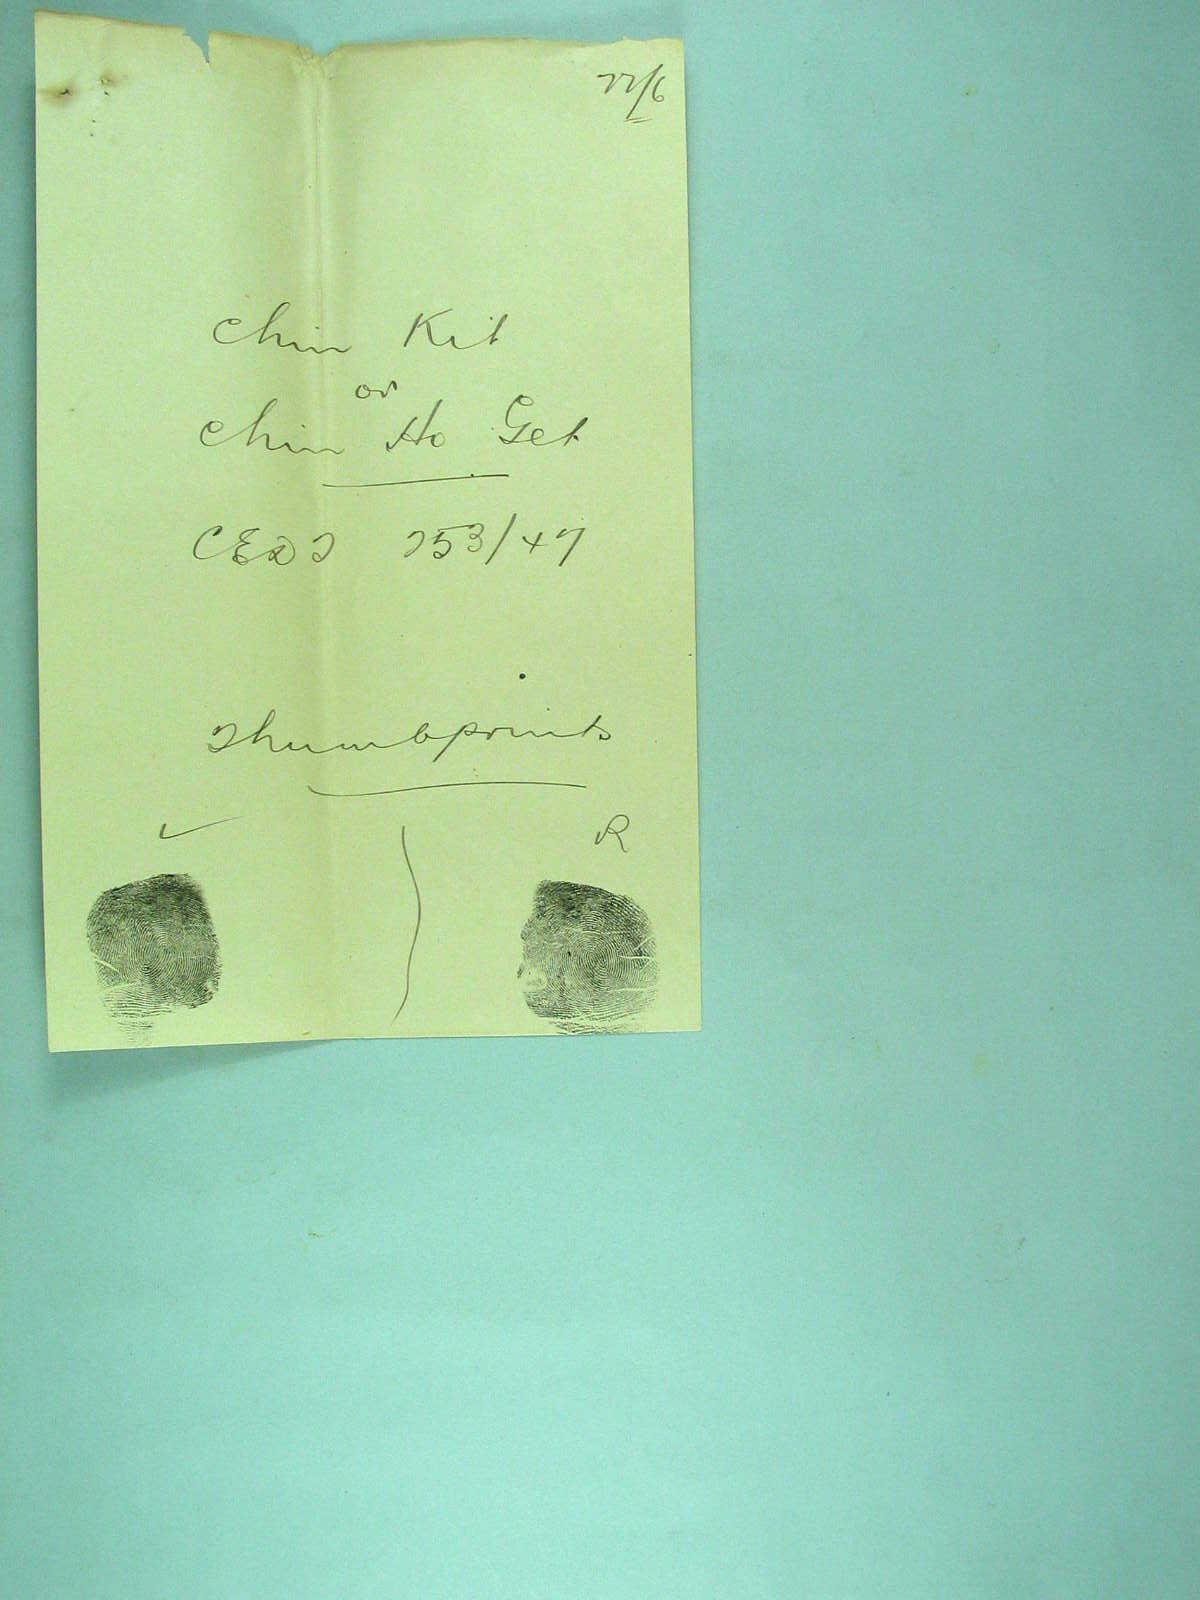 22/6
Chin Kit
or
Chin Ho Get
CEDT 253/47
Thumbprints
L R